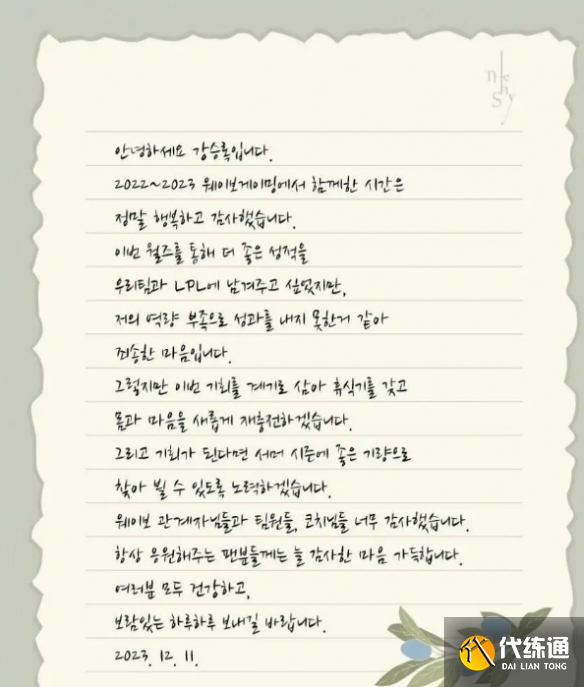 The
Shy
안녕하세요 강승록입니다.
2022~2023 웨이보게이밍에서 함께한 시간은
정말 행복하고 감사했습니다.
이번 월즈를 통해 더 좋은 성적을
우리팀과 LPL에 남겨주고 싶었지만,
저의 역량 부족으로 성과를 내지 못한거 같아
죄송한 마음입니다.
그렇지만 이번 기회를 계기로 삼아 휴식기를 갖고
몸과 마음을 새롭게 재충전하겠습니다.
그리고 기회가 된다면 서머 시즌에 좋은 기량으로
찾아 뵐 수 있도록 노력하겠습니다.
웨이보 관계자님들과 팀원들, 코치님들 너무 감사했습니다.
항상 응원해주는 팬분들께는 늘 감사한 마음 가득합니다.
여러분 모두 건강하고,
보람있는 하루하루 보내길 바랍니다.
2023. 12. 11.
代练通
DAI LIAN TONG